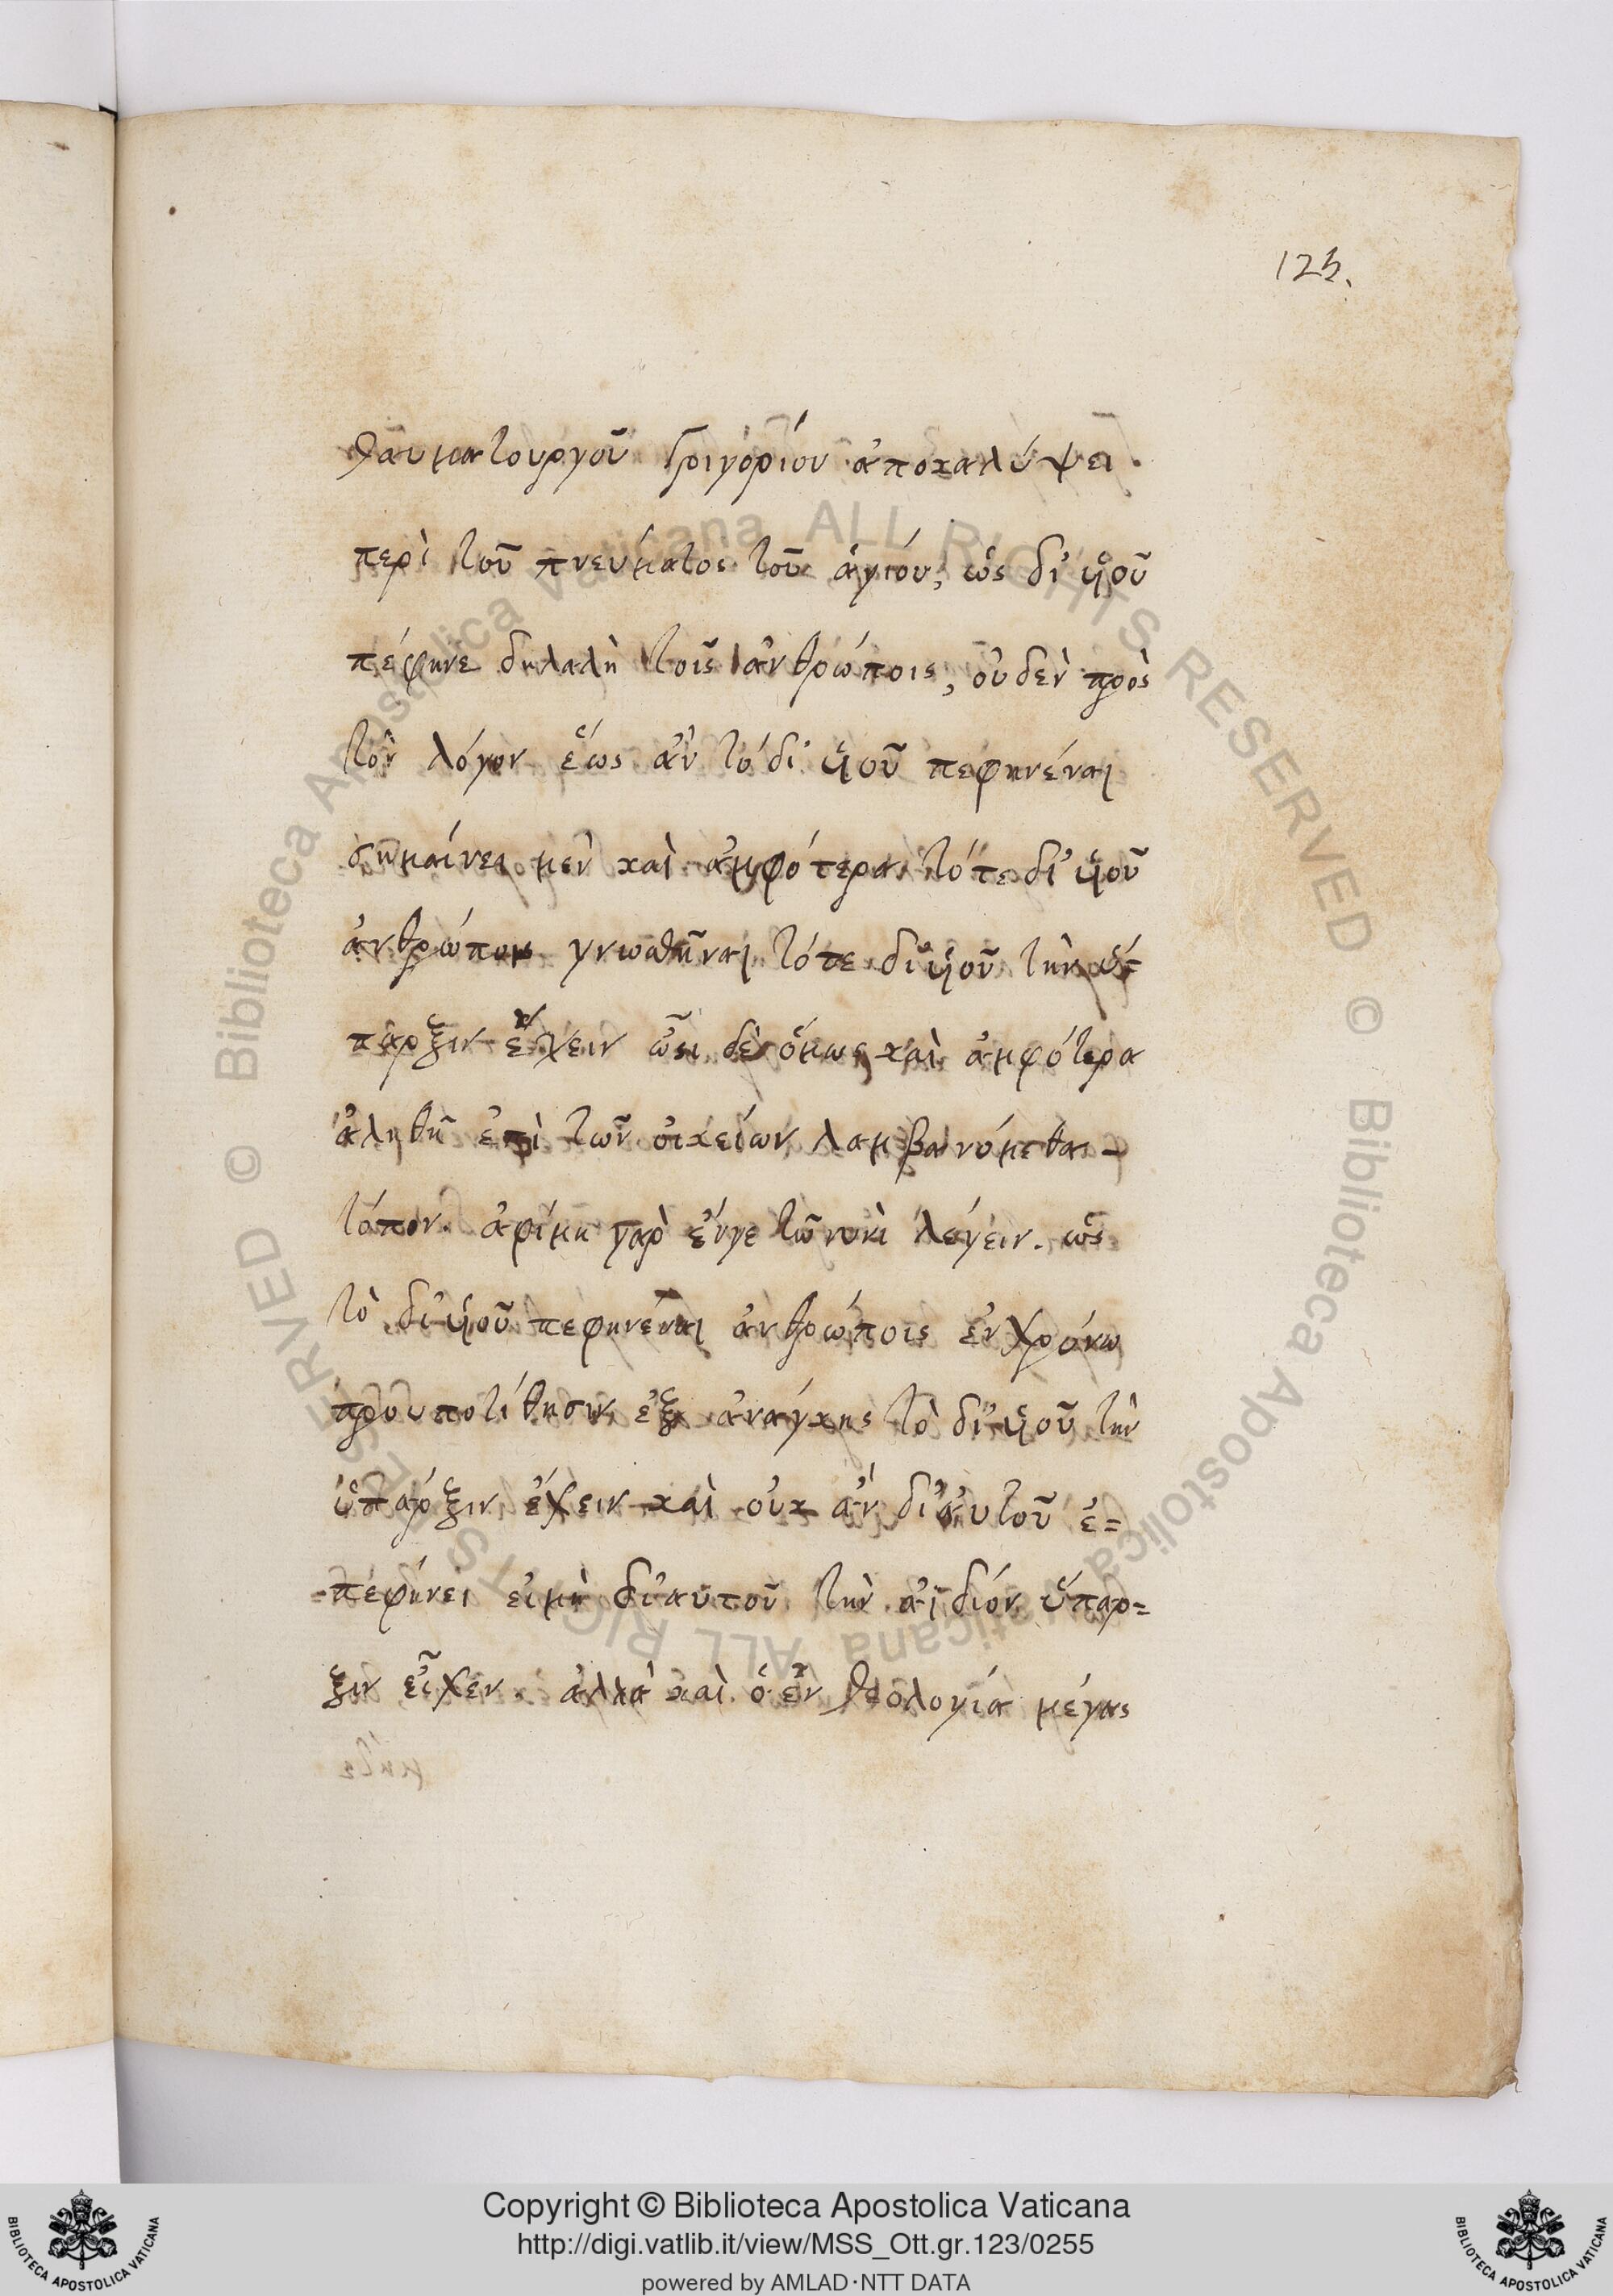 125.
θαυματουργοῦ Γριγορίου ἀποκαλύψει.
περὶ τοῦ πνεύματος τοῦ ἁγίου, ὡς δι' ὑοῦ
πέφηνε δηλαλὴ τοῖς ἀνθρώποις, οὐδὲν πρὸς
τὸν λόγον ἕως ἂν τό δι' ὑοῦ πεφηνέναι
σημαίνει μὲν καὶ ἀμφότερα τότε δι' ὑοῦ
γνωσθῆναι τότε δι' ὑοῦ τὴν ὕ=
παρξιν ἔχειν δὲ ὅμως καὶ ἀμφότερα
ἀληθῆ ἐπὶ τῶν οἰκείων λαμβανόμεθαι-
τόπον. γὰρ λέγειν. ὡς
τὸ δι' ὑοῦ πεφηνέναι ἀνθρώποις ἐν χρόνω
ἐξ ἀνάγκης τὸ δι' ὑοῦ τὴν
ὕπαρξιν ἔχειν καὶ οὐκ ἂν δι' αὐτοῦ ἐ=
-πεφήνει εἰμὴ δι' αυτοῦ τὴν ἀΐδιόν ὕπαρ=
ξιν εἶχεν. ἀλλὰ καὶ ὁ ἐν θεολογία μέγας
Copyright © Biblioteca Apostolica Vaticana
http://digi.vatlib.it/view/MSS_Ott.gr.123/0255
powered by AMLAD·NTT DATA
BIBLIOTECA APOSTOLICA VATICANA
BIBLIOTECA APOSTOLICA VATICANA
© Biblioteca Apostolica Vaticana ALL RIGHTS RESERVED © Biblioteca Apostolica Vaticana ALL RIGHTS RESERVED